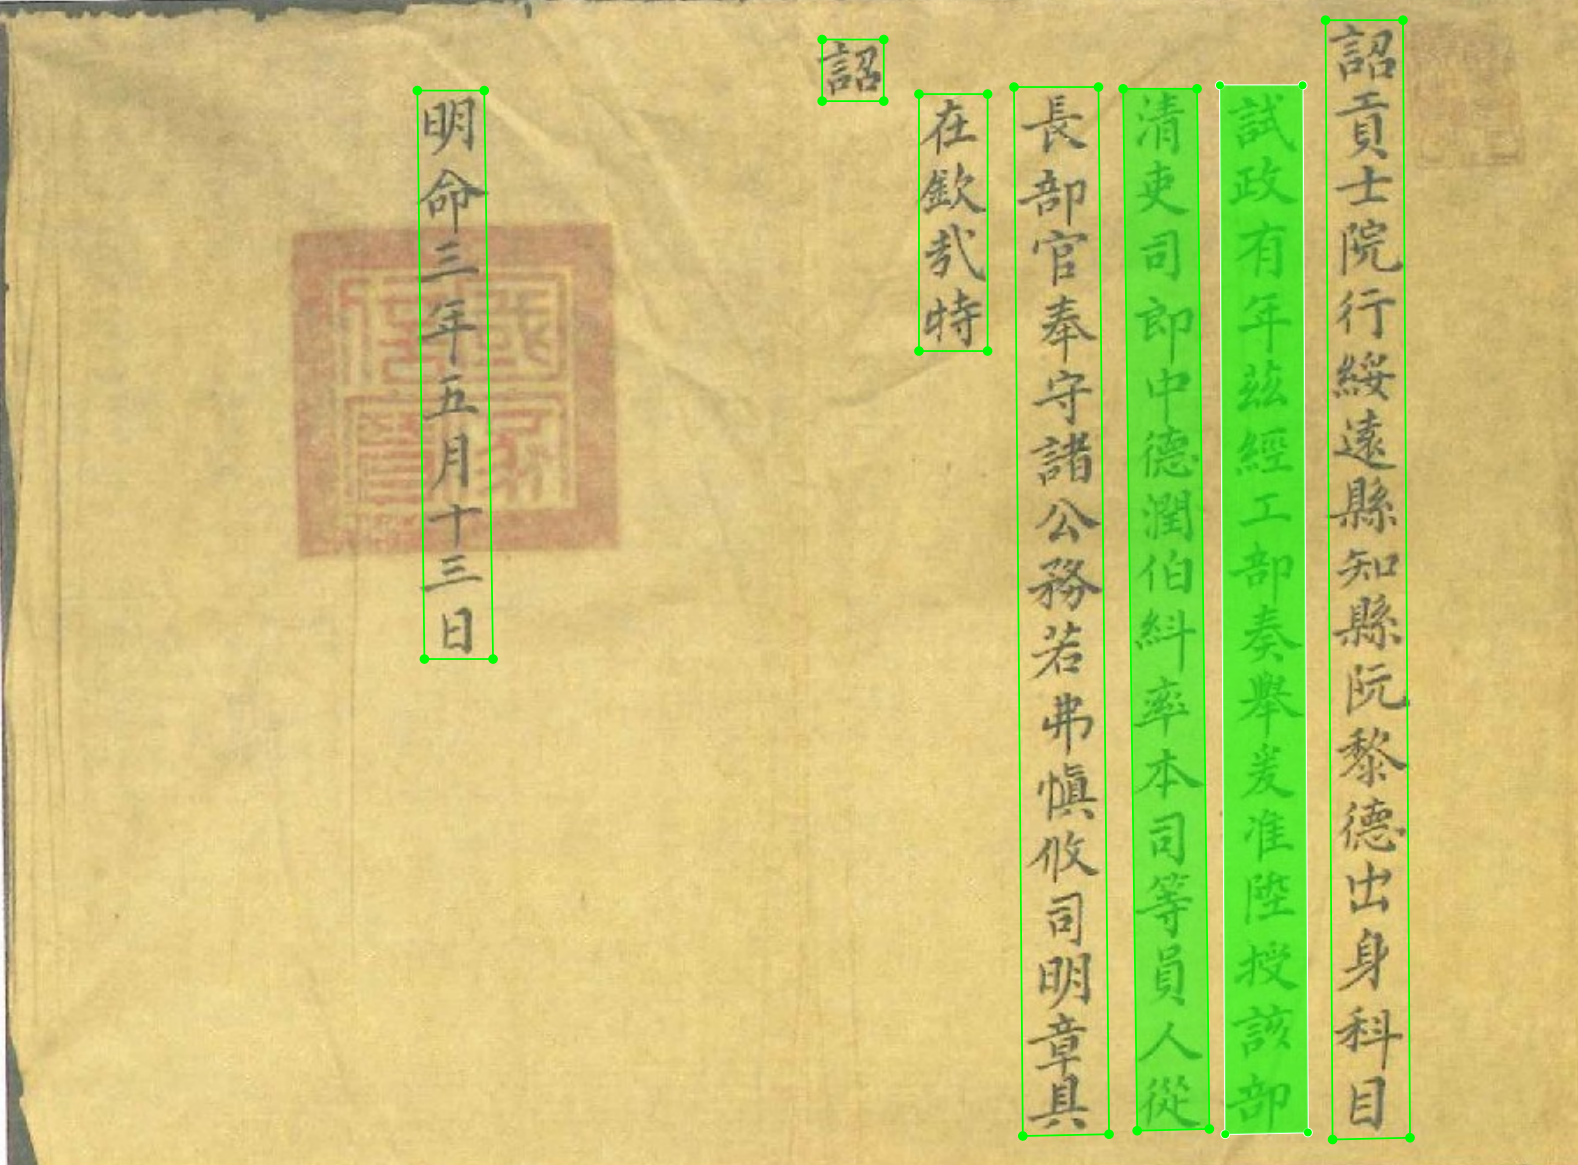 詔貢士院行綏遠縣知縣阮黎德出身科目
試政有年茲經工部奏舉爰准陞授該部
清吏司郎中德潤伯糾率本司等員人從
長部官奉守諸公務若弗愼攸司明章具
在欽哉特
詔
明命三年五月十三日
國家信寶